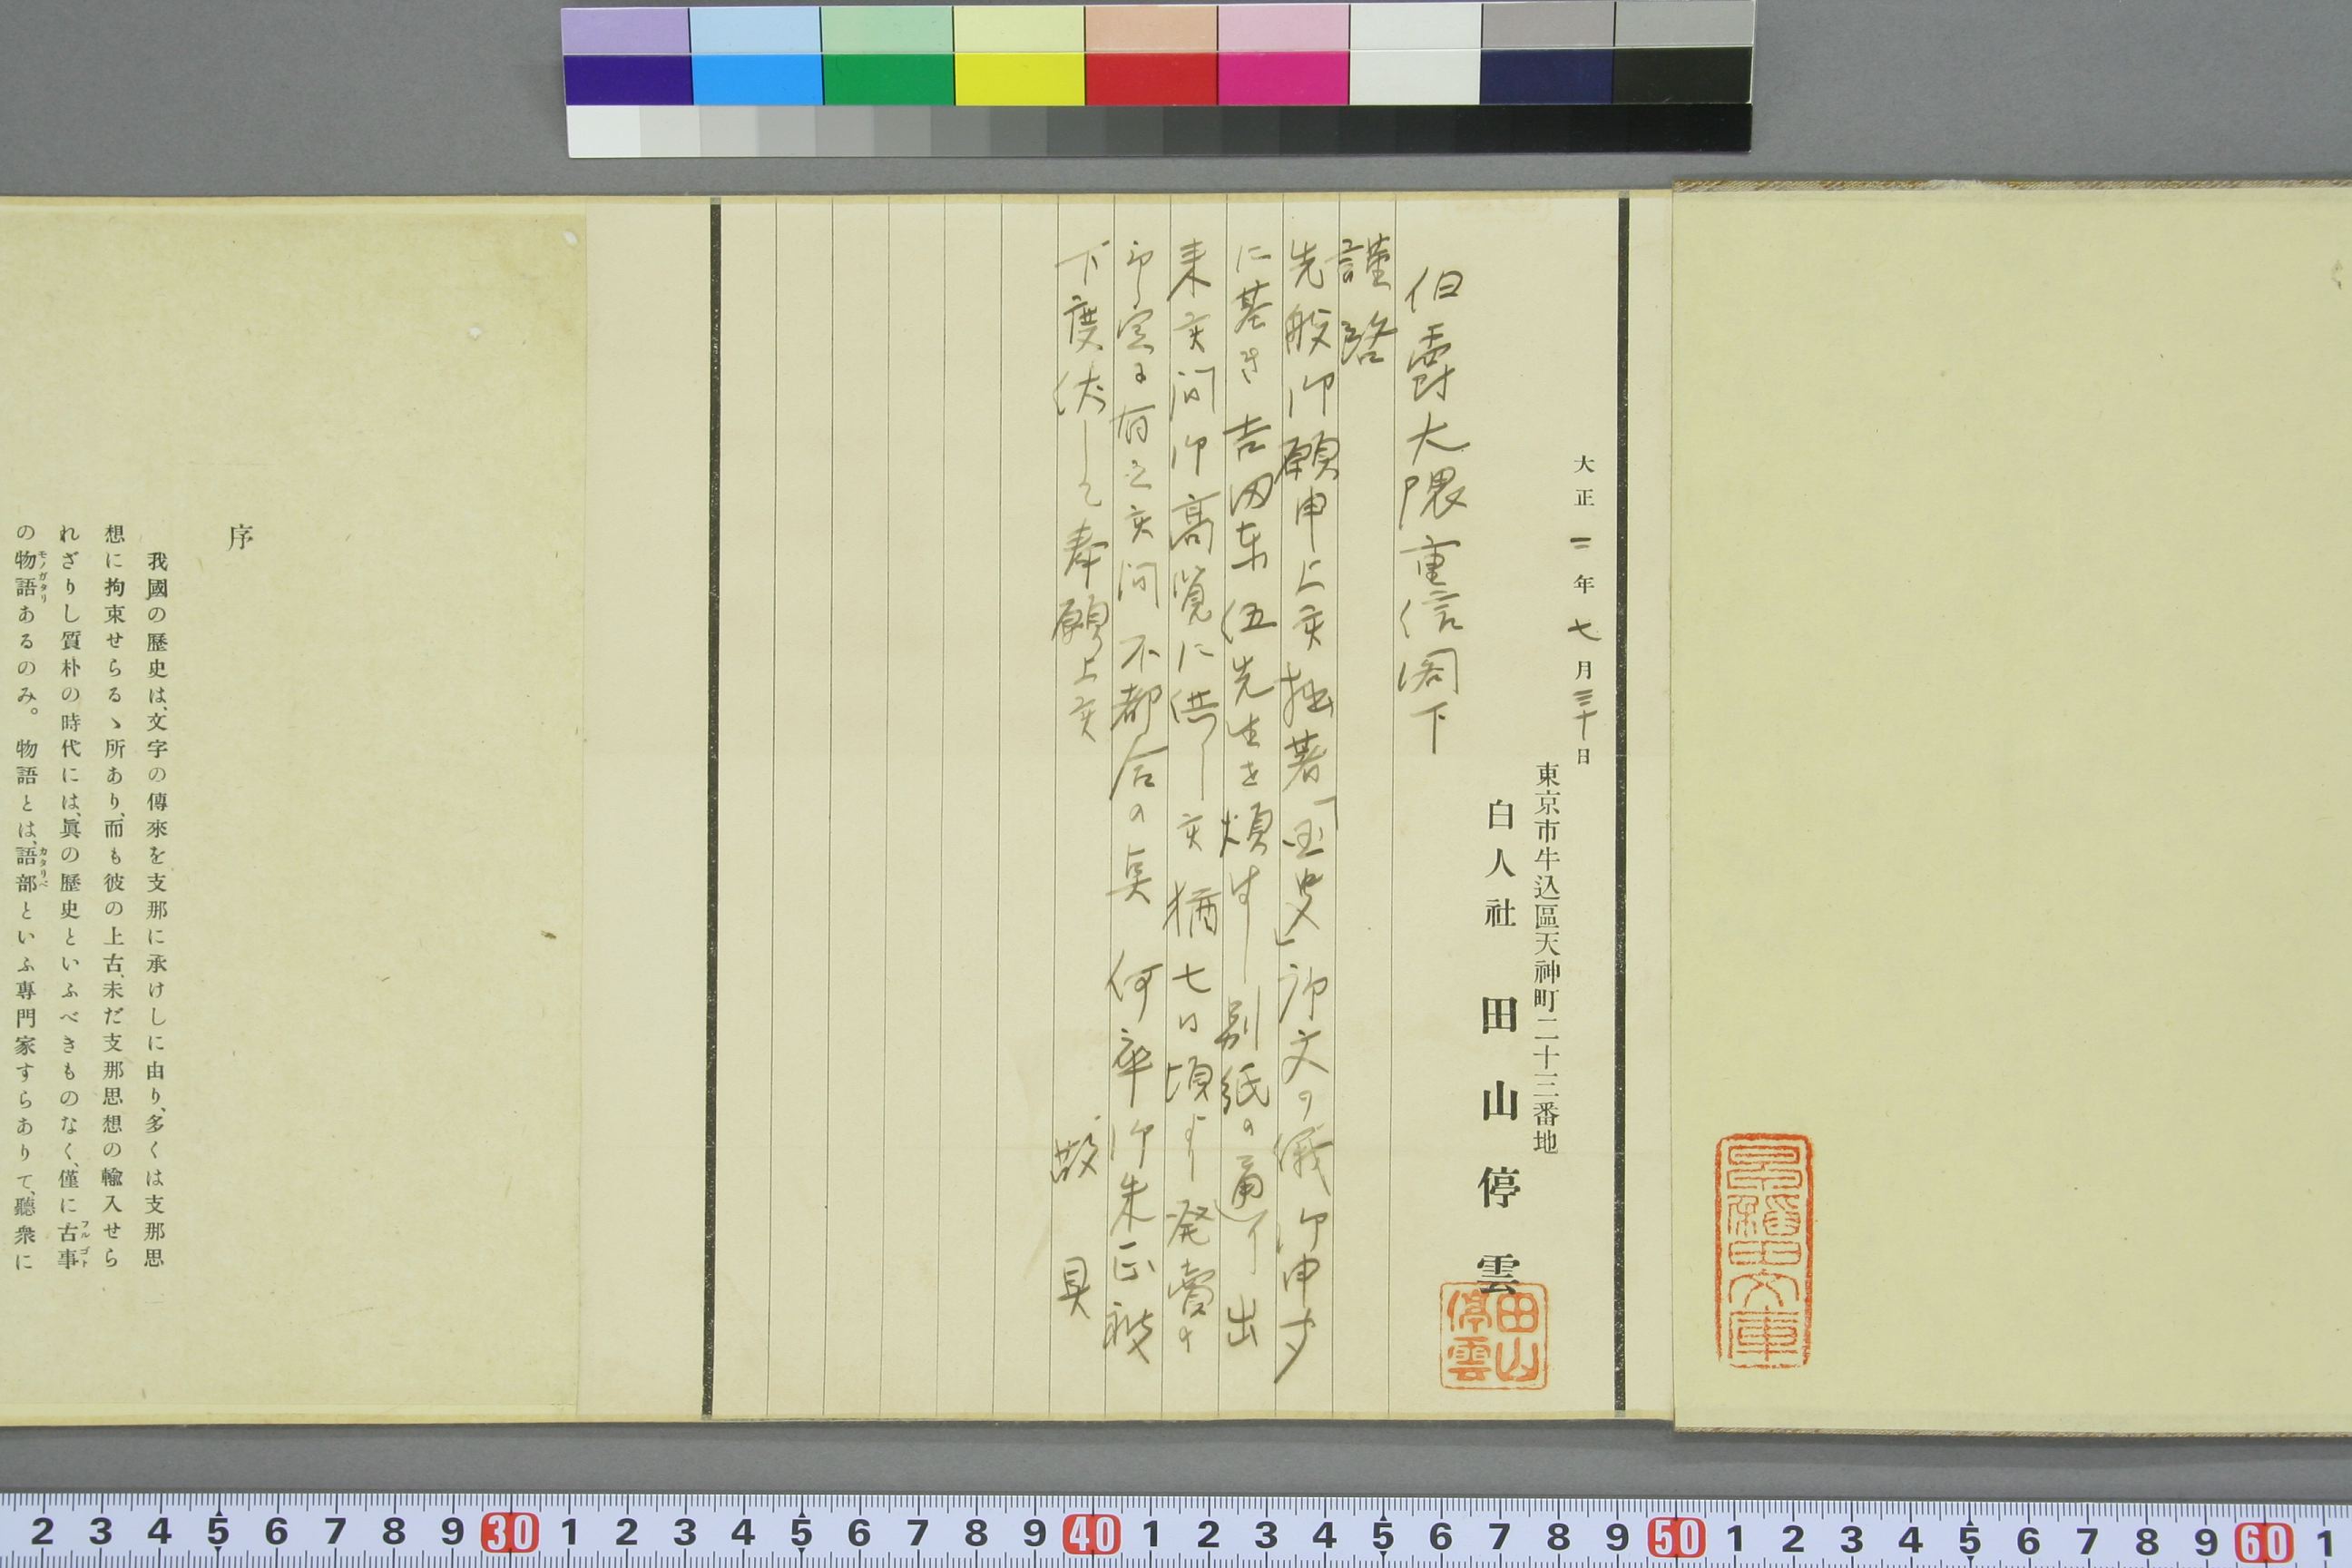 大正二年七月三十日
東京市牛込區天神町二十三番地
白人社 田山停雲
田山停雲
伯爵大隈重信閣下
謹啓
先般御願申上候拙著「国史」御序文の儀御申聞
に基き吉田東伍先生を煩はし別紙の通り出
来候間御高覧に供し候猶七日頃より発売の
予定に有之候間不都合の点何卒御朱正被
下度伏して奉願上候 敬具
序
我國の歷史は、文字の傳來を支那に承けしに由り、多くは支那思
想に拘束せらるゝ所あり、而も彼の上古、未だ支那思想の輸入せら
れざりし質朴の時代には、眞の歷史といふべきものなく、僅に古事フルゴト
の物語モノガタリあるのみ。物語とは、語部カタリベといふ專門家すらありて、聽衆に
2 3 4 5 6 7 8 9 30 1 2 3 4 5 6 7 8 9 40 1 2 3 4 5 6 7 8 9 50 1 2 3 4 5 6 7 8 9 60 1